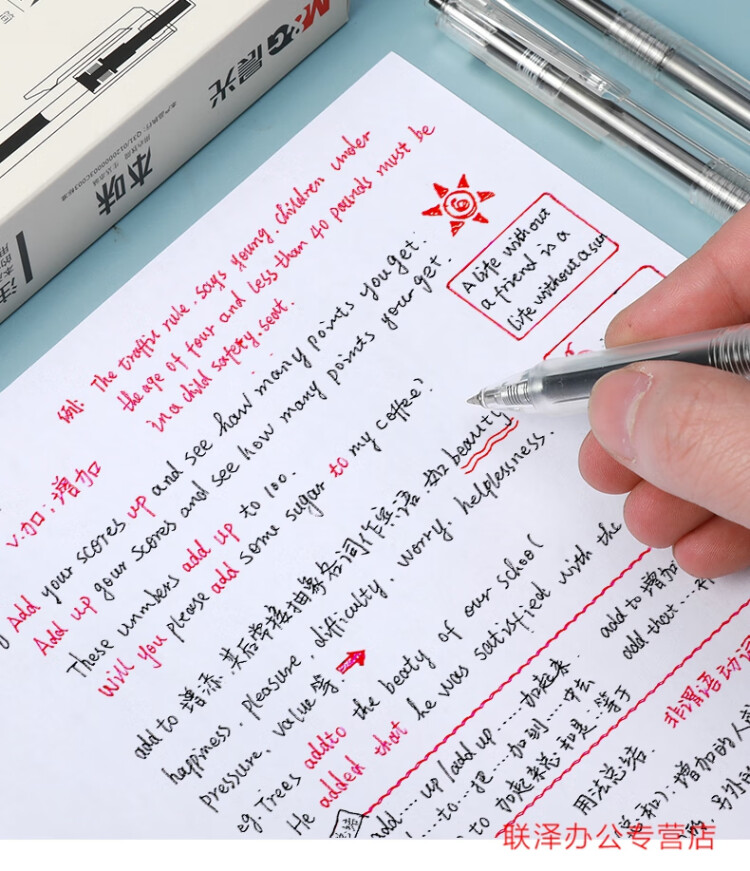 M&G晨光
本味
例: The traffic rule says young children under
the age of four and less than 40 pounds must be
in a child safety seat.
A life without
a friend is a
life without a sun
v.加;增加
Add your scores up and see how many points you get.
Add up your scores and see how many points your get.
These unmbers add up to 100.
Will you please add some sugar to my coffee?
add to 增添.其后常接抽象名词作宾语.如beauty
happiness, pleasure, difficulty, worry, helplessness.
pressure, value等.
eg. Trees addto the beaty of our school
He added that he was satisfied with the
add… up/add up ……加起来.
…to…把…加到…中去
to 加起来总和是.等于
add to 增加
add that
非谓语动词
用法总结.
联泽办公专营店